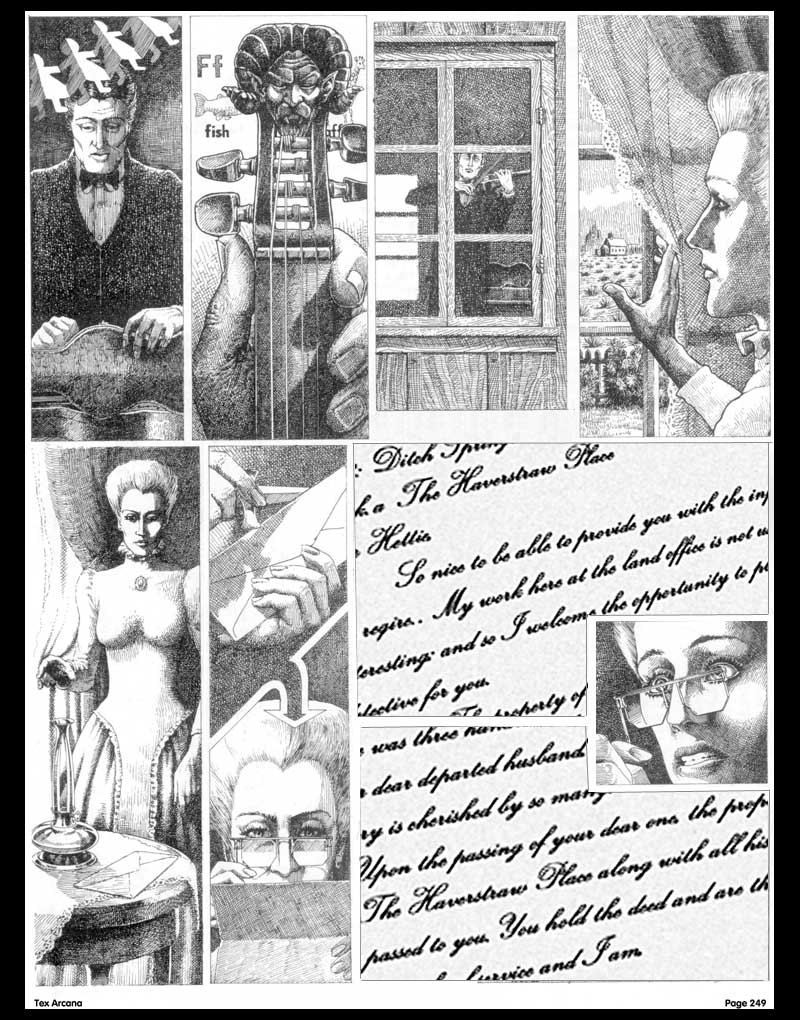 Ff
fish
: Ditch Spring
k.a The Haverstraw Place
Hettie
So nice to be able to provide you with the
regire.. My work here at the land office is not
teresting: and so I welcome the opportunity to
tective for you.
The property of
was three
dear departed husband.
ry is cherished by so many
Upon the passing of your dear one, the prop
The Haverstraw Place along with all his
passed to you. You hold the deed and are th
service and I am,
Tex Arcana
Page 249